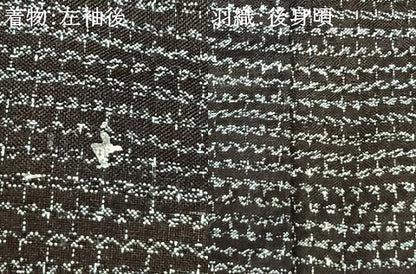 着物:左袖後
羽織:後身頃